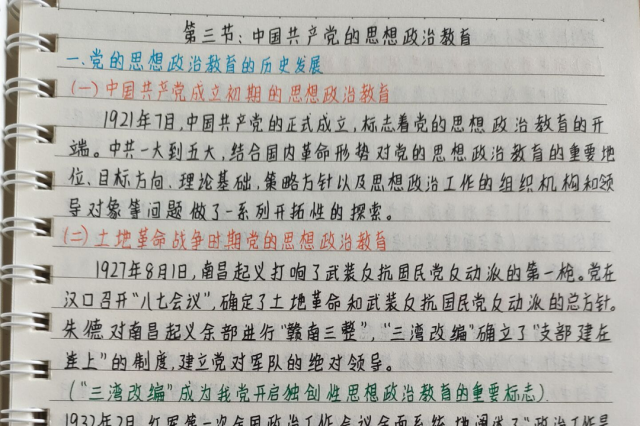 第三节：中国共产党的思想政治教育
一、党的思想政治教育的历史发展
(一)中国共产党成立初期的思想政治教育
1921年7月,中国共产党的正式成立,标志着党的思想政治教育的开
端。中共一大到五大,结合国内革命形势对党的思想政治教育的重要地
位、目标方向、理论基础,策略方针以及思想政治工作的组织机构和领
导对象等问题做了一系列开拓性的探索。
(二)土地革命战争时期党的思想政治教育
1927年8月1日,南昌起义打响了武装反抗国民党反动派的第一枪。党在
汉口召开"八七会议",确定了土地革命和武装反抗国民党反动派的总方针。
朱德对南昌起义余部进行"赣南三整","三湾改编"确立了"支部建在
连上"的制度,建立党对军队的绝对领导。
("三湾改编"成为我党开启独创性思想政治教育的重要标志).
1932年2月,红军第一次全国政治工作会议全面系统地阐述了"政治工作是